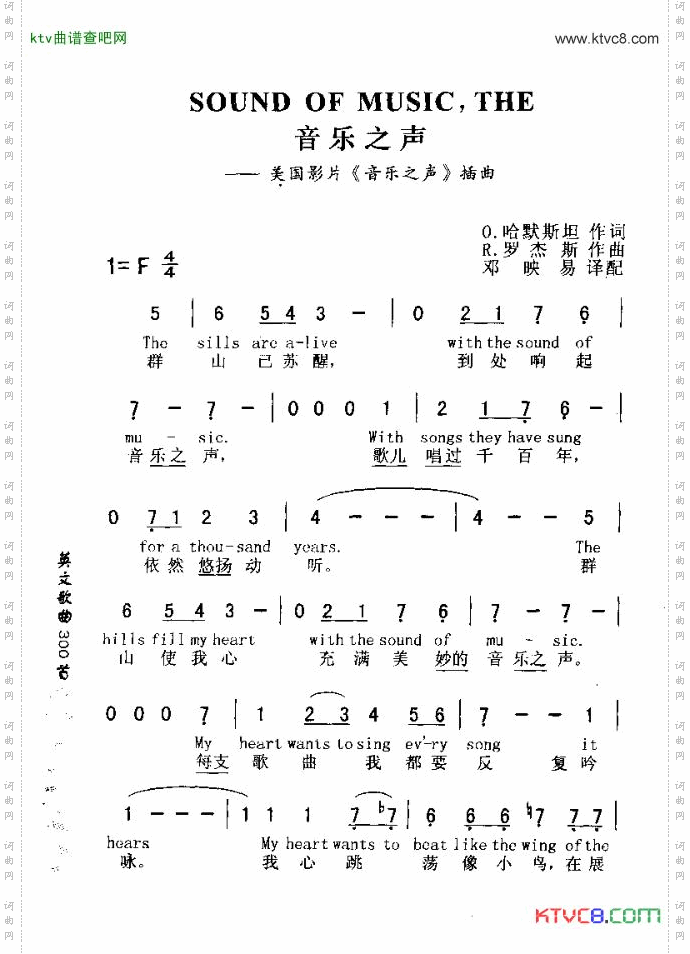 ktv曲谱查吧网
www.ktvc8.com
SOUND OF MUSIC, THE
音乐之声
—— 美国影片《音乐之声》插曲
O.哈默斯坦 作词
R.罗杰斯 作曲
邓映易 译配
1=F 4/4
5 | 6 5 4 3 - | 0 2 1 7 6 |
The sills are a-live with the sound of
群 山 已苏醒, 到处响起
7 - 7 - | 0 0 0 1 | 2 1 7 6 - |
mu - sic. With songs they have sung
音乐之声, 歌儿 唱过千百年,
0 7 1 2 3 | 4 - - - | 4 - - 5 |
for a thou-sand years. The
依然悠扬动 听。 群
6 5 4 3 - | 0 2 1 7 6 | 7 - 7 - |
hills fill my heart with the sound of mu - sic.
山 使我心 充满美妙的音乐之声。
0 0 0 7 | 1 2 3 4 5 6 | 7 - - 1 |
My heart wants to sing ev'-ry song it
每支 歌 曲 我 都要 反 复吟
1 - - - | 1 1 1 7 ♭7 | 6 6 6 ♮7 7 7 |
hears My heart wants to beat like the wing of the
咏。 我心跳 荡像小鸟,在展
英文歌曲300首
KTVC8.COM
词曲网